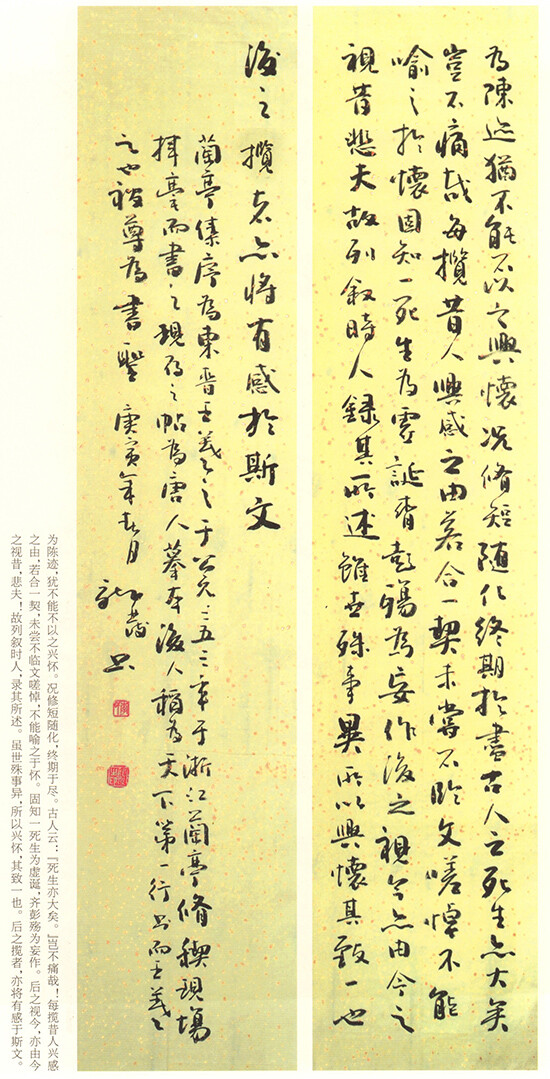 為陳迹猶不能不以之興懷況脩短隨化終期於盡古人云死生亦大矣
豈不痛哉每攬昔人興感之由若合一契未嘗不臨文嗟悼不能
喻之於懷固知一死生為虛誕齊彭殤為妄作後之視今亦由今之
視昔悲夫故列敘時人錄其所述雖世殊事異所以興懷其致一也
後之攬者亦將有感於斯文
蘭亭集序為東晉王羲之于公元三五三年于浙江蘭亭脩禊現場
揮毫而書之現存之帖為唐人摹本後人稱為天下第一行書而王羲
之也被尊為書聖 庚寅年春月 書
为陈迹，犹不能不以之兴怀。况修短随化，终期于尽。古人云：『死生亦大矣。』岂不痛哉！每揽昔人兴感
之由，若合一契，未尝不临文嗟悼，不能喻之于怀。固知一死生为虚诞，齐彭殇为妄作。后之视今，亦由今
之视昔，悲夫！故列叙时人，录其所述。虽世殊事异，所以兴怀，其致一也。后之揽者，亦将有感于斯文。